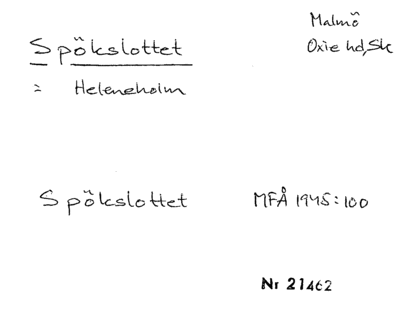 Spökslottet
Malmö
Oxie hd, Sk
= Heleneholm
Spökslottet MFÅ 1945:100
Nr 21462